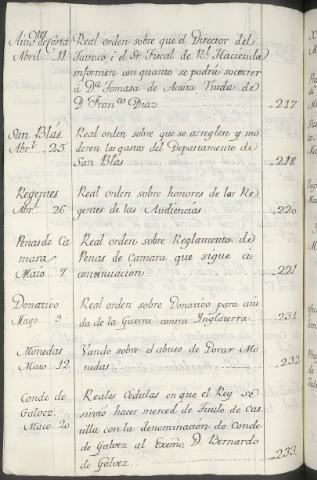 Real orden sobre que el Director del
Abril 11 Tavaco, i el Sr Fiscal de Rl. Hacienda
informen con quanto se podrá socorrer
á Da. Tomasa de Acosta Viuda de
Dn. Franco Diaz 217
San Blás. Real orden sobre que se arreglen y mo
Abrl. 25 deren las gastas del Departamento de
San Blás 218
Regentes Real orden sobre honores de las Re
Abrl. 26 gentes de las Audiencias 220
Penas de Ca Real orden sobre Reglamento de
mara Penas de Camara que sigue á
Maio 7 continuacion 221
Donativo Real orden sobre Donativo para aiu
Mayo 9 da de la Guerra contra Ynglaterra 231
Monedas Vando sobre el abuso de Dorar Mo
Maio 12 nedas 232
Conde de Reales Cedulas en que el Rey se
Galvez sirvió hacer merced de Titulo de Cas
Maio 20 tilla con la denominacion de Conde
de Galvez al Exmo. D. Bernardo
de Galvez 233